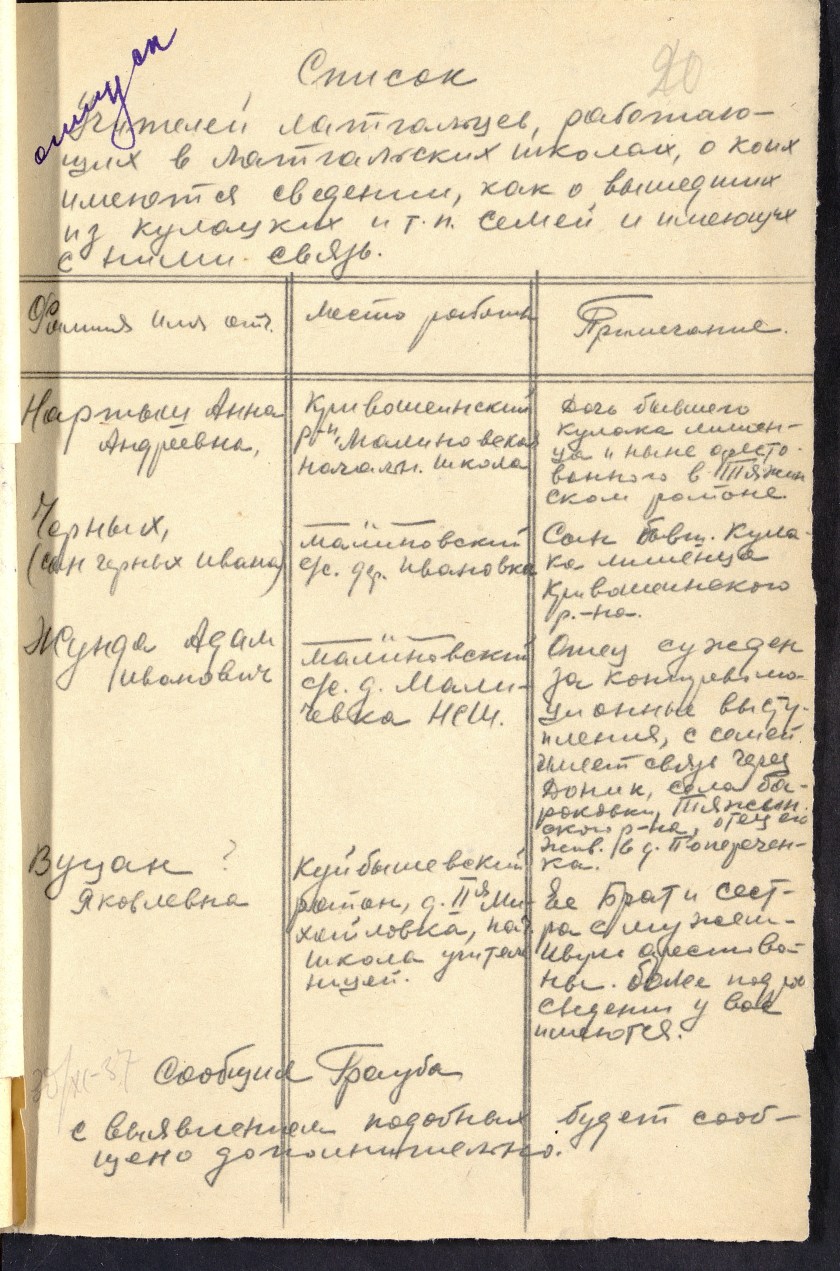 отпуск
20
Список
Учителей латгальцев, работаю-
щих в латгальских школах, о коих
имеются сведении, как о вышедших
из кулацких и т.п. семей и имеющих
с ними связь.
Фамилия Имя отч.
Место работы
Примечание.
Нартыш Анна
Андреевна,
Кривошеинский
р-н, Малиновская
начальн. школа
Дочь бывшего
кулака лишен-
ца и ныне аресто-
ванного в Тяжин
ском районе.
Черных,
(сын черных Ивана)
Малиновский
с/с. дер. Ивановка
Сын бывш. Кула-
ка лишенца
Кривошеинского
р.-на.
Жунда Адам
Иванович
Малиновский
с/с. д. Мали-
чевка НСШ.
Отец сужден
за контрреволю-
ционные высту-
пления, с семей
имеет связь через
Доник, села Ба-
роковки, Тяжин.
ского р-на, отец его
жив. в д. Поперечен-
ка.
Вуцан ?
Яковлевна
Куйбышевский
район, д. II-я Ми-
хайловка, нач.
школа учитель
ницей.
Ее Брат и сест-
ра с мужем-
Ивули арестова-
ны. более под
сведении у вас
имеются.
30/XI-37
Сообщил Грауба
с выявлением подобных будет сооб-
щено дополнительно.